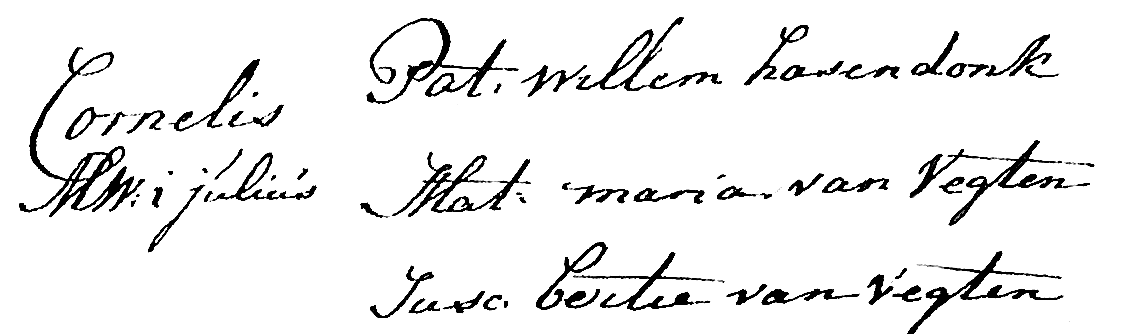 Cornelis
NW: i julius
Pat. Willem hasendonk
Mat: maria van Vegten
Susc. bertie van Vegten